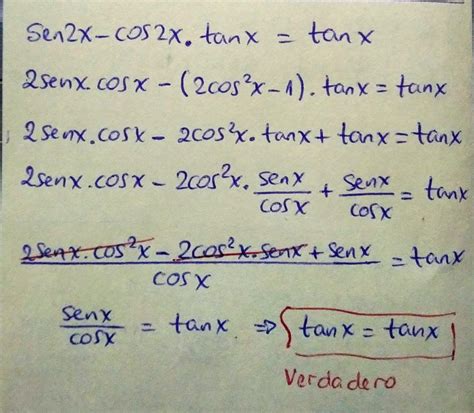 sen2x - cos2x. tanx = tanx
2senx. cosx - (2cos²x - 1). tanx = tanx
2senx. cosx - 2cos²x. tanx + tanx = tanx
2senx. cosx - 2cos²x. senx/cosx + senx/cosx = tanx
(2senx. cos²x - 2cos²x. senx + senx)/cosx = tanx
senx/cosx = tanx ⇒ tanx = tanx
Verdadero